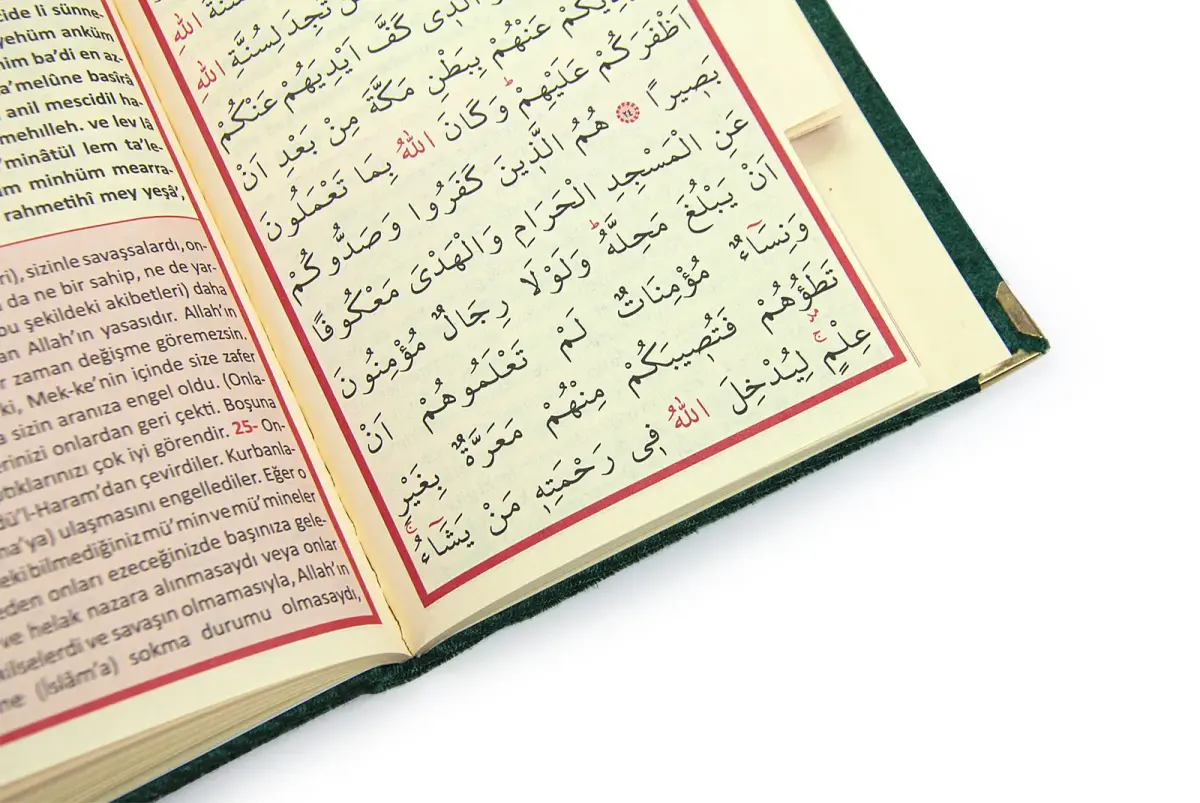 li sünne-
yehüm anküm
him ba'di en az-
a'melûne basîrâ
anil mescidil ha-
mehılleh. ve lev lâ
'minâtül lem ta'le-
minhüm mearra-
rahmetihî mey yeşâ',
sizinle savaşsalardı, on-
da ne bir sahip, ne de yar-
bu şekildeki akibetleri) daha
Allah'ın yasasıdır. Allah'ın
zaman değişme göremezsin.
ki, Mek-ke'nin içinde size zafer
sizin aranıza engel oldu. (Onla-
erinizi onlardan geri çekti. Boşuna
tıklarınızı çok iyi görendir. 25- On-
dü'l-Haram'dan çevirdiler. Kurbanla-
na'ya) ulaşmasını engellediler. Eğer o
eki bilmediğiniz mü'min ve mü'mineler
eden onları ezeceğinizde başınıza gele-
ve helak nazara alınmasaydı veya onlar
kilselerdi ve savaşın olmamasıyla, Allah'ın
(İslâm'a) sokma durumu olmasaydı,
سُنَّةَ اللهِ
تَجِدَ لِسُنَّةِ اللهِ
الَّذِى كَفَّ اَيْدِيَهُمْ عَنْكُمْ
عَنْهُمْ بِبَطْنِ مَكَّةَ مِنْ بَعْدِ اَنْ
اَظْفَرَكُمْ عَلَيْهِمْ وَكَانَ اللهُ بِمَا تَعْمَلُونَ
بَصِيرًا ٢٤ هُمُ الَّذِينَ كَفَرُوا وَصَدُّوكُمْ
عَنِ الْمَسْجِدِ الْحَرَامِ وَالْهَدْىَ مَعْكُوفًا
اَنْ يَبْلُغَ مَحِلَّهُ وَلَوْلَا رِجَالٌ مُؤْمِنُونَ
وَنِسَاءٌ مُؤْمِنَاتٌ لَمْ تَعْلَمُوهُمْ اَنْ
تَطَؤُهُمْ فَتُصِيبَكُمْ مِنْهُمْ مَعَرَّةٌ بِغَيْرِ
عِلْمٍ لِيُدْخِلَ اللهُ فِى رَحْمَتِهِ مَنْ يَشَاءُ